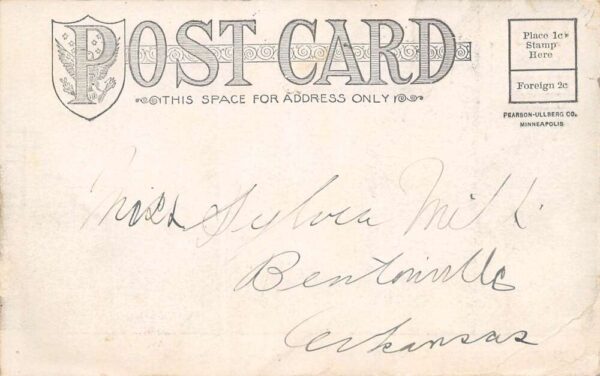 POST CARD
THIS SPACE FOR ADDRESS ONLY
Place 1c
Stamp
Here
Foreign 2c
PEARSON-ULLBERG CO.
MINNEAPOLIS
Miss Sylvia Mill
Bentonville
Arkansas